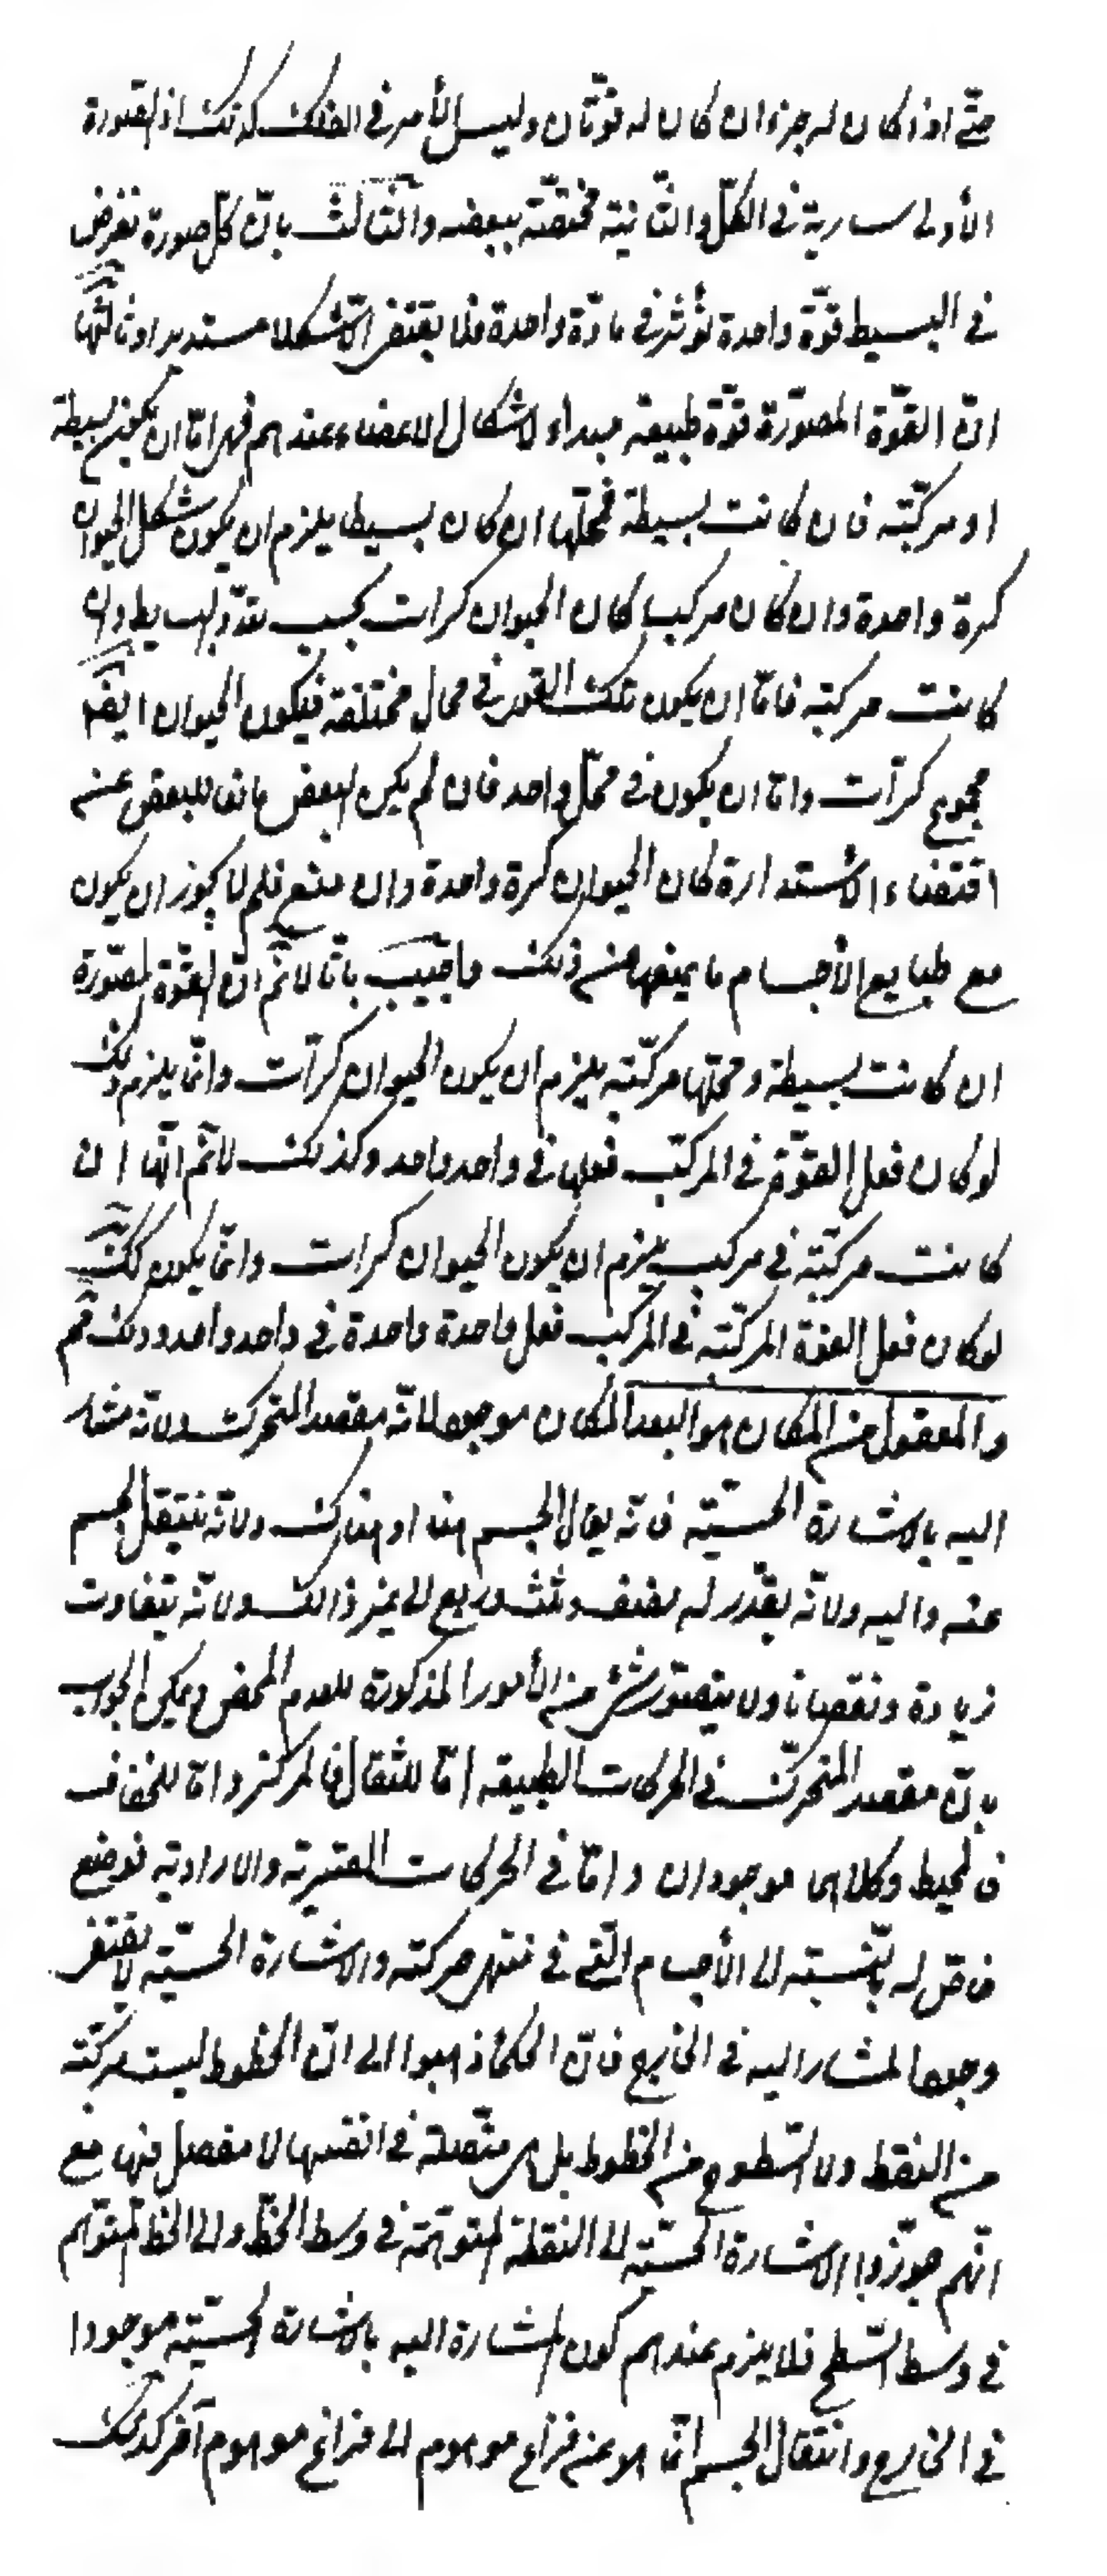 حتّى اذا كان له جزءان كان له قوّتان وليس الأمر في الفلك كذلك اذ الصورة
الأولى سارية في الكلّ والثّانية مختصّة ببعضه والثّالث بانّ كلّ صورة تفرض
في البسيط قوّة واحدة تؤثر في مادّة واحدة فلا يقتضى الّا شكلا مستديرا وثالثها
انّ القوّة المصوّرة قوّة طبيعية مبداء لاشكال الاعضاء عندهم فهى امّا ان تكون بسيطة
او مركّبة فان كانت بسيطة فمحلّها ان كان بسيطا يلزم ان يكون شكل الحيوان
كرة واحدة وان كان مركبا كان الحيوان كرات بحسب تعدّد البسايط وان
كانت مركبة فامّا ان يكون تلك القوى في محال مختلفة فيكون الحيوان ايضا
مجموع كرآت وامّا ان يكون في محلّ واحد فان لم يكن البعض مانعا للبعض عن
اقتضاء الاستدارة كان الحيوان كرة واحدة وان منع فلم لا يجوز ان يكون
مع طبايع الأجسام ما يمنعها من ذلك واجيب بانّا لا نم انّ القوّة المصوّرة
ان كانت بسيطة ومحلّها مركّبة يلزم ان يكون الحيوان كرآت وانّما يلزم ذلك
لو كان فعل القوّة في المركّب فعلها في واحد واحد وكذلك لا نم انّها ان
كانت مركّبة في مركب يلزم ان يكون الحيوان كرات وانّما يكون كذلك
لو كان فعل القوة المركّبة في المركب فعل واحدة واحدة في واحد واحد وذلك مم
والمعقول من المكان هو البعد المكان موجود لانّه مقصد المتحرك ولانّه مشار
اليه بالاشارة الحسّيّة فانّه يقال الجسم هنا او هناك ولانّه ينتقل الجسم
عنه واليه ولانّه يقدّر له نصف وثلث وربع الى غير ذالك ولانّه يتفاوت
زيادة ونقصانا ولا يتصوّر شئ من الأمور المذكورة للعدم المحض ويمكن الجواب
بانّ مقصد المتحرّك في الحركات الطبيعية امّا للثقال فالمركز وامّا للخفاف
فالمحيط وكلاهما موجودان وامّا في الحركات القسرية والارادية فوضع
خاصّ له بالنّسبة الى الأجسام الّتى في منتهى حركته والاشارة الحسّيّة لا يقتضى
وجود المشار اليه في الخارج فانّ الحكماء ذهبوا الى انّ الخطوط ليست مركّبة
من النقط ولا السّطوح من الخطوط بل هى متّصلة في انفسها لا مفصل فيها مع
انّهم جوّزوا الاشارة الحسّيّة الى النقطة المتوهّمة في وسط الخطّ والى الخط المتوهّم
في وسط السّطح فلا يلزم عندهم كون المشارة اليه بالاشارة الحسّيّة موجودا
في الخارج وانتقال الجسم انّما هو من فراغ موهوم الى فراغ موهوم آخر كذلك